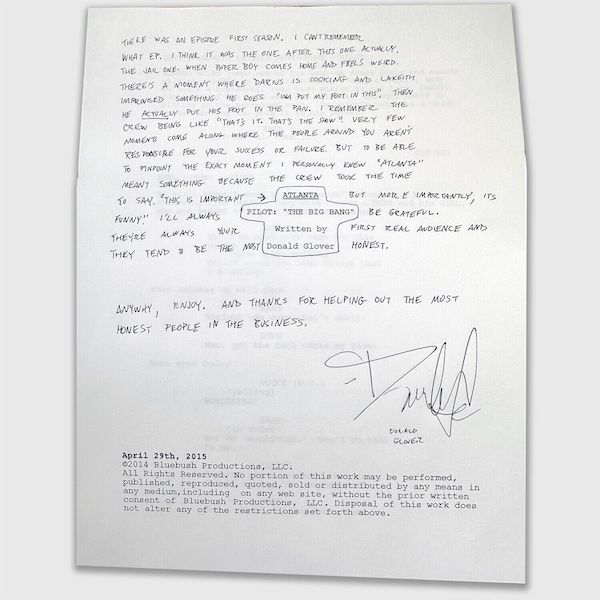 THERE WAS AN EPISODE FIRST SEASON. I CAN'T REMEMBER
WHAT EP. I THINK IT WAS THE ONE AFTER THIS ONE ACTUALLY.
THE JAIL ONE. WHEN PAPER BOY COMES HOME AND FEELS WEIRD.
THERE'S A MOMENT WHERE DARIUS IS COOKING AND LAKEITH
IMPROVISED SOMETHING. HE DOES "IMA PUT MY FOOT IN THIS". THEN
HE ACTUALLY PUT HIS FOOT IN THE PAN. I REMEMBER THE
CREW BEING LIKE "THAT'S IT. THAT'S THE SHOW". VERY FEW
MOMENTS COME ALONG WHERE THE PEOPLE AROUND YOU AREN'T
RESPONSIBLE FOR YOUR SUCCESS OR FAILURE. BUT TO BE ABLE
TO PINPOINT THE EXACT MOMENT I PERSONALLY KNEW "ATLANTA"
MEANT SOMETHING BECAUSE THE CREW TOOK THE TIME
TO SAY. "THIS IS IMPORTANT → ATLANTA BUT MORE IMPORTANTLY, ITS
FUNNY." I'LL ALWAYS PILOT: "THE BIG BANG" BE GRATEFUL.
THEY'RE ALWAYS YOUR Written by FIRST REAL AUDIENCE AND
THEY TEND TO BE THE MOST Donald Glover HONEST.
ANYWAY, ENJOY. AND THANKS FOR HELPING OUT THE MOST
HONEST PEOPLE IN THE BUSINESS.
DONALD
GLOVER
April 29th, 2015
©2014 Bluebush Productions, LLC.
All Rights Reserved. No portion of this work may be performed,
published, reproduced, quoted, sold or distributed by any means in
any medium,including on any web site, without the prior written
consent of Bluebush Productions, LLC. Disposal of this work does
not alter any of the restrictions set forth above.